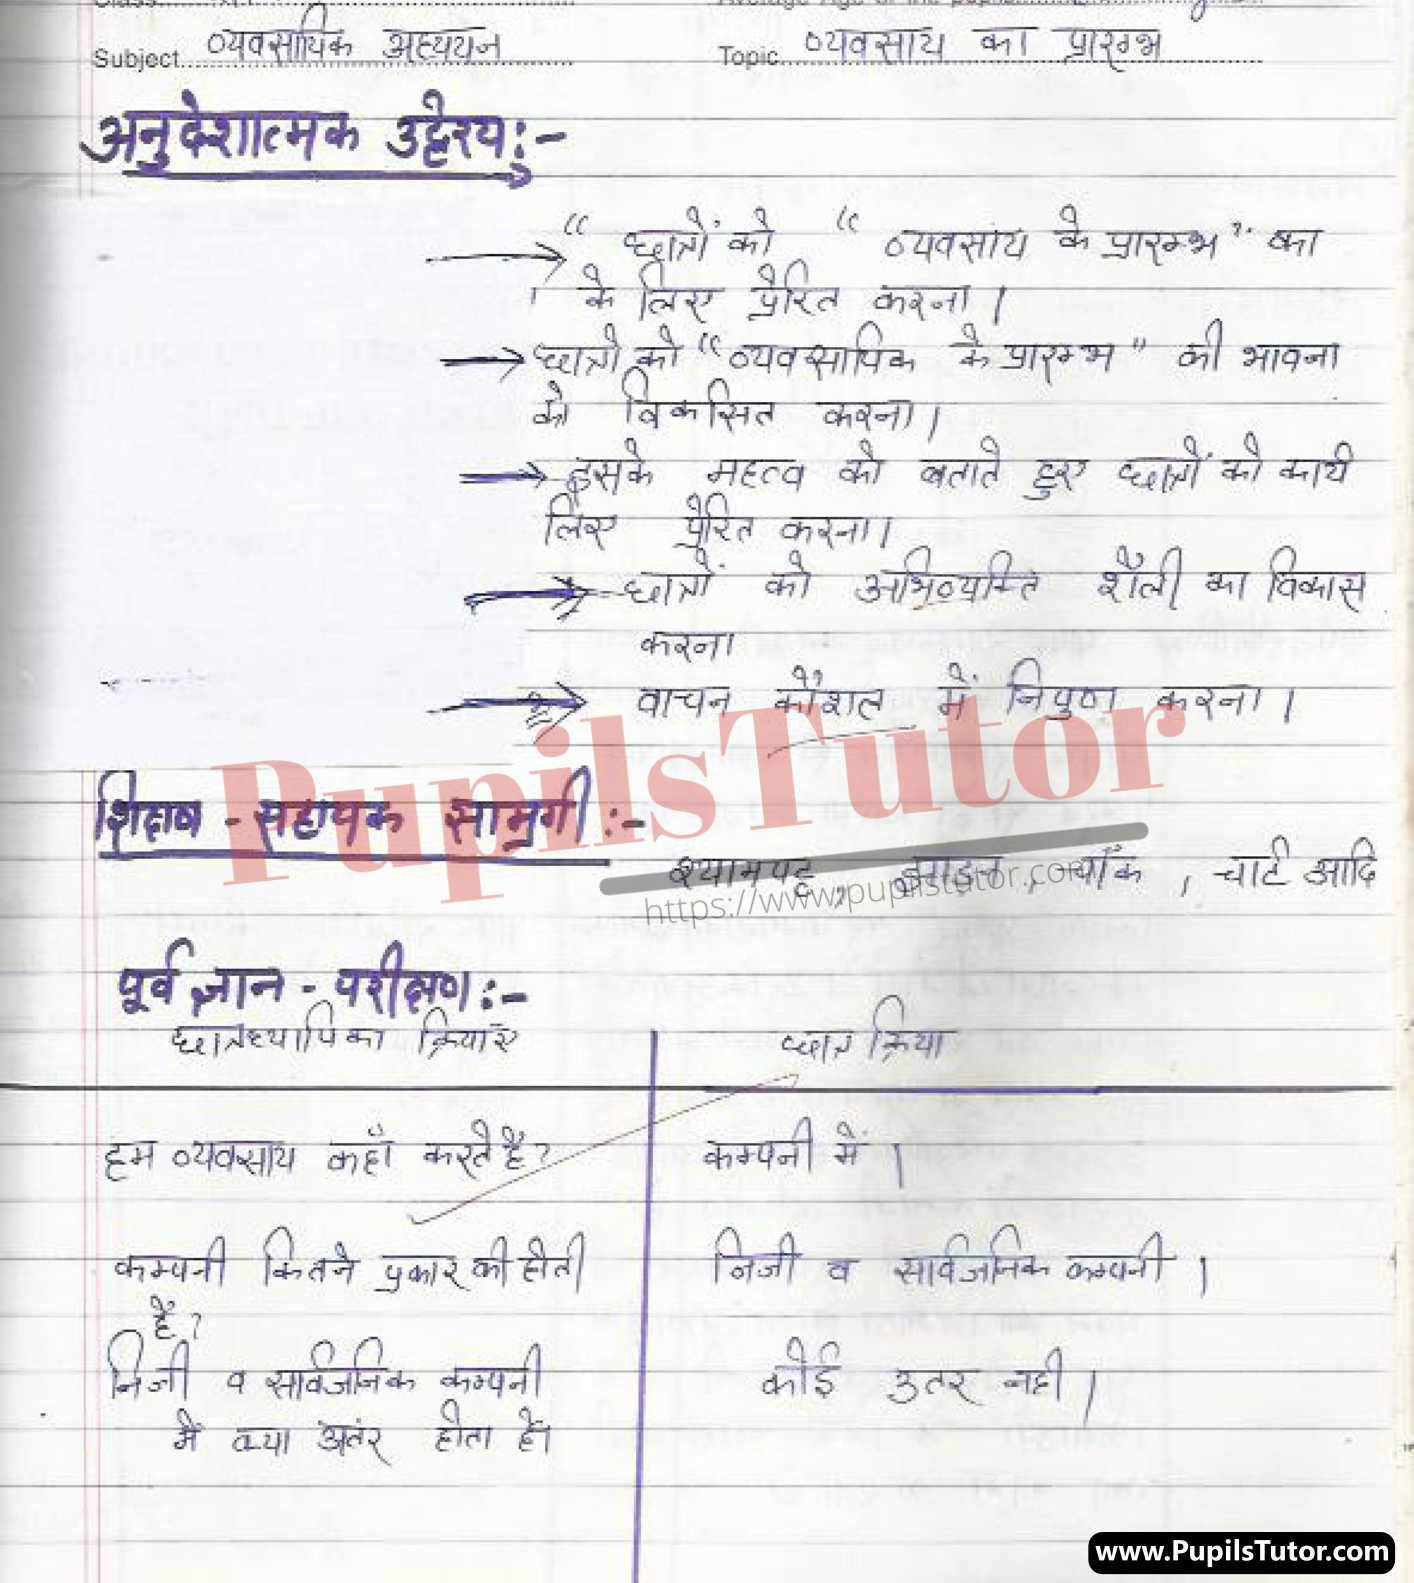 Subject व्यवसायिक अध्ययन Topic व्यवसाय का प्रारम्भ
अनुदेशात्मक उद्देश्य:-
" छात्रों को " व्यवसाय के प्रारम्भ" का
के लिए प्रेरित करना।
छात्रों को "व्यवसायिक के प्रारम्भ" की भावना
को विकसित करना।
इसके महत्व को बताते हुए छात्रों को कार्य
लिए प्रेरित करना।
छात्रों को अभिव्यक्ति शैली का विकास
करना
वाचन कौशल में निपुण करना।
PupilsTutor
शिक्षण - सहायक सामग्री :-
श्यामपट्ट, झाड़न, चॉक, चार्ट आदि
https://www.pupilstutor.com
पूर्व ज्ञान - परीक्षण:-
छात्रध्यापिका क्रियाएं छात्र क्रिया
हम व्यवसाय कहाँ करते हैं? कम्पनी में।
कम्पनी कितने प्रकार की होती निजी व सार्वजनिक कम्पनी।
है?
निजी व सार्वजनिक कम्पनी कोई उतर नही।
में क्या अंतर होता है।
www.PupilsTutor.com